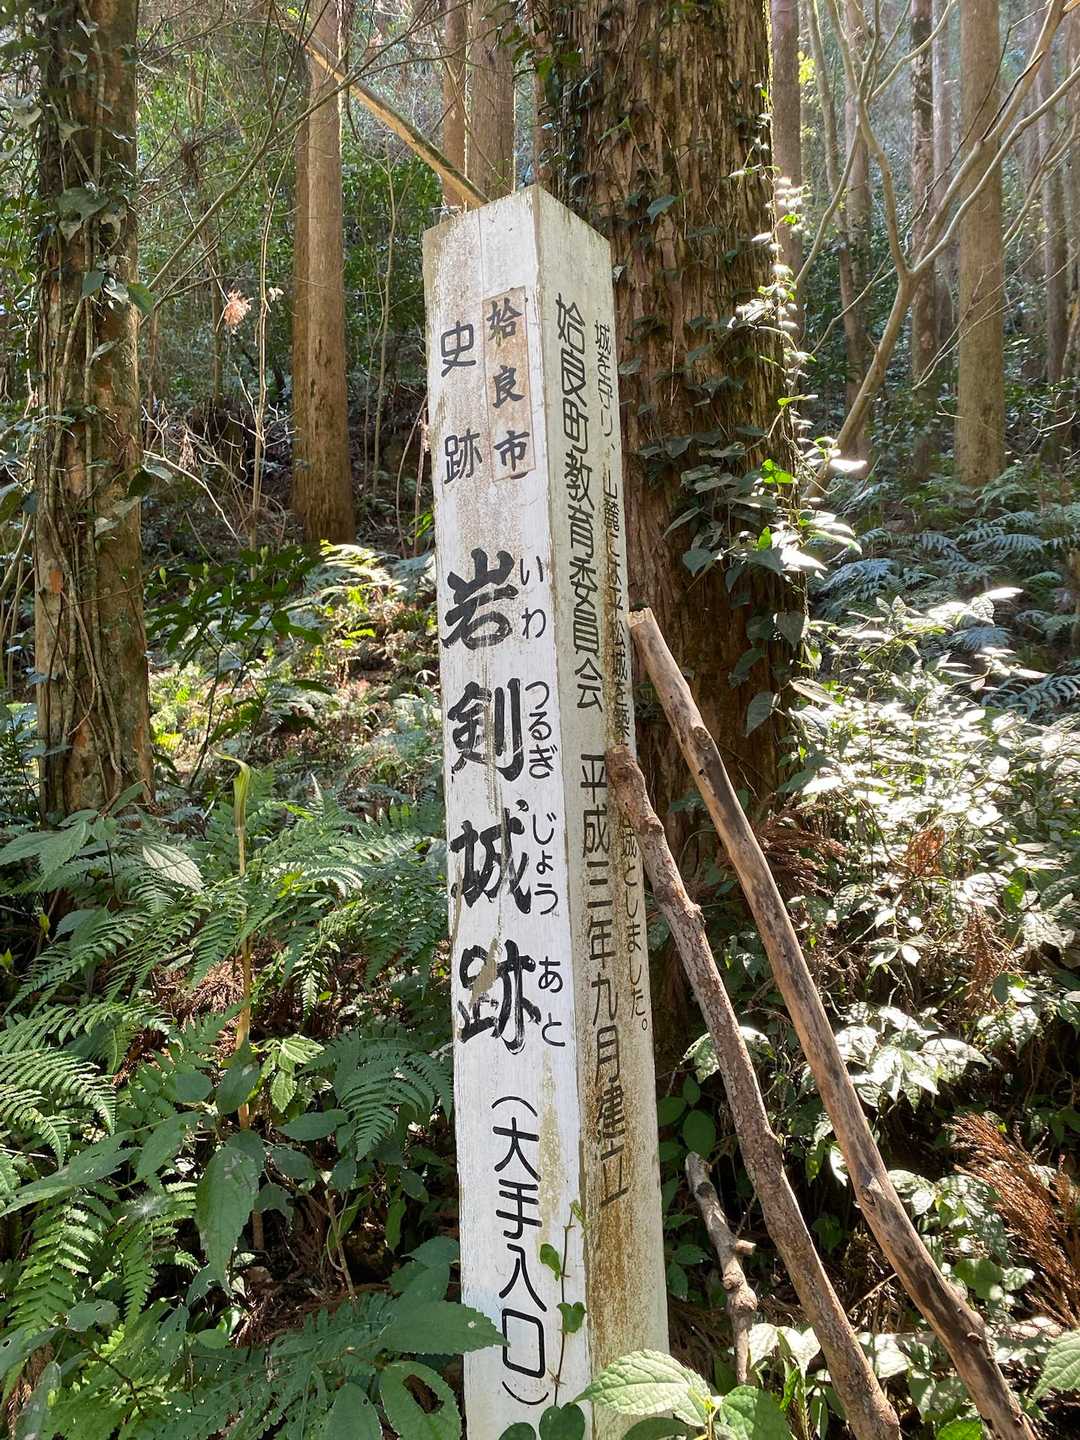 姶良市
史跡
岩剣城跡
いわつるぎじょうあと
(大手入口)
姶良町教育委員会 平成三年九月建立
城を守り、山麓には平松城を築
城としました。